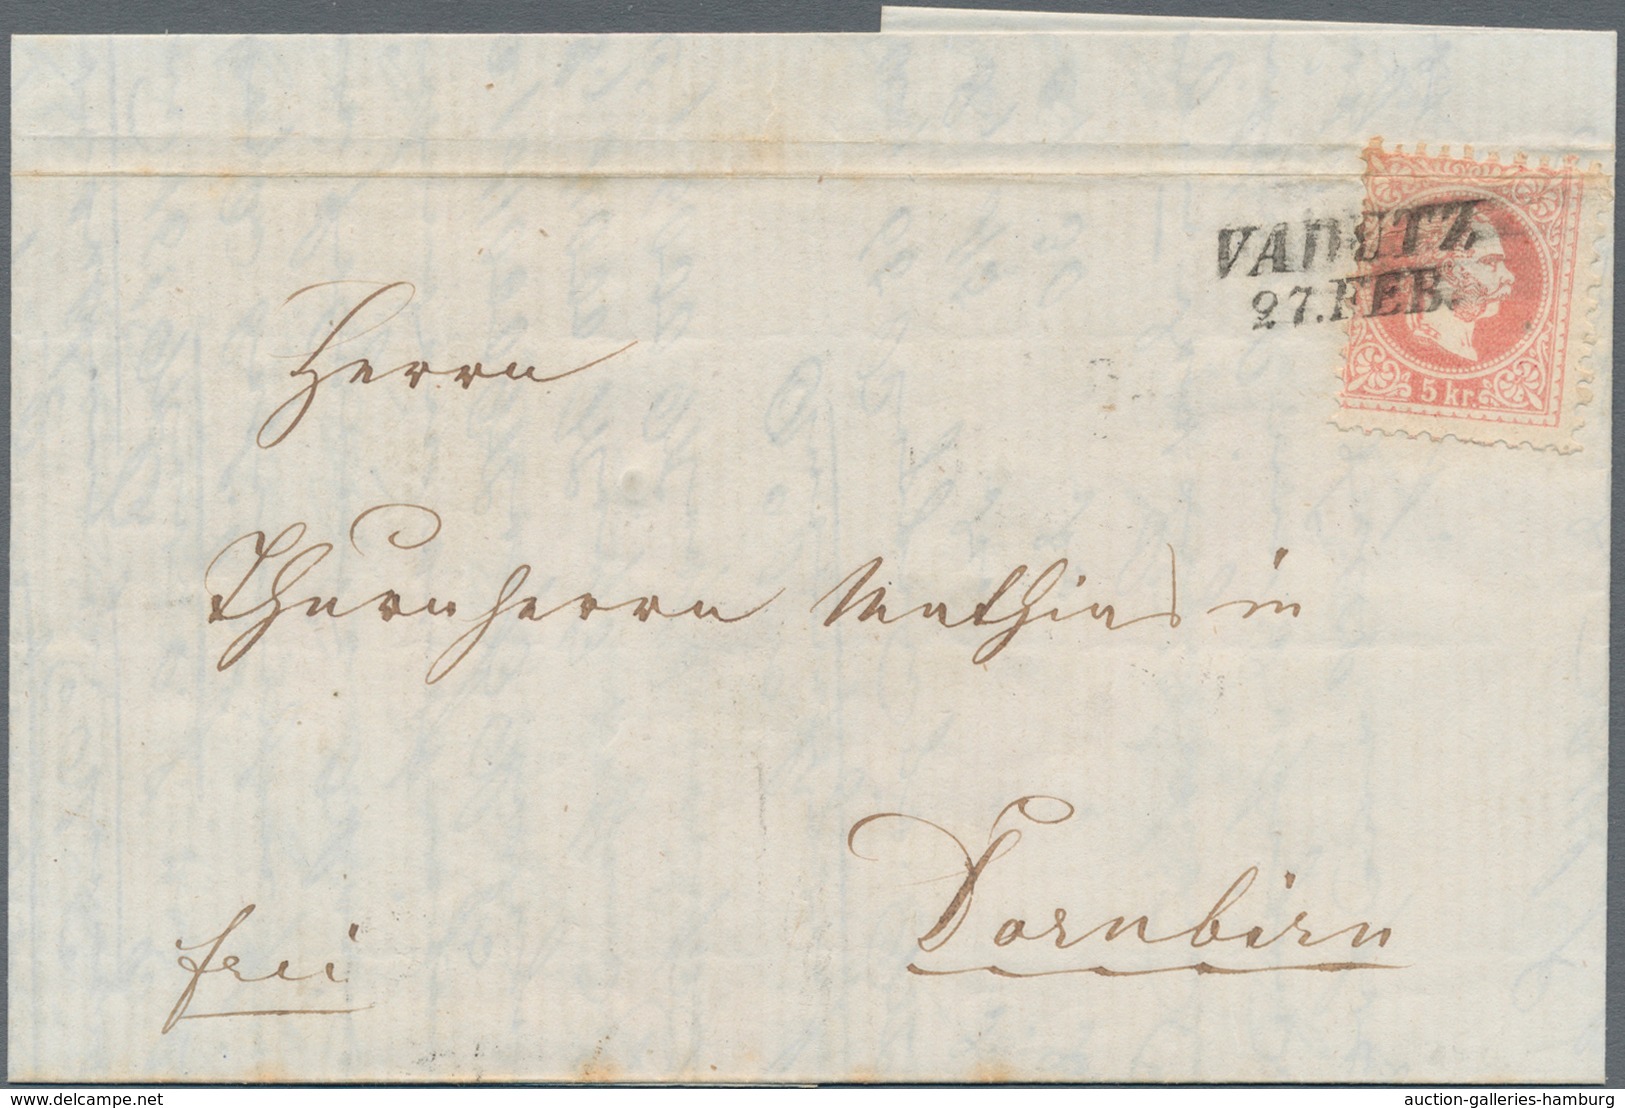 VADUTZ
27. FEB.
5 kr.
Herrn
Thurnherrn Mathias in
Dornbirn
frei
www.delcampe.net
auction-galleries-hamburg